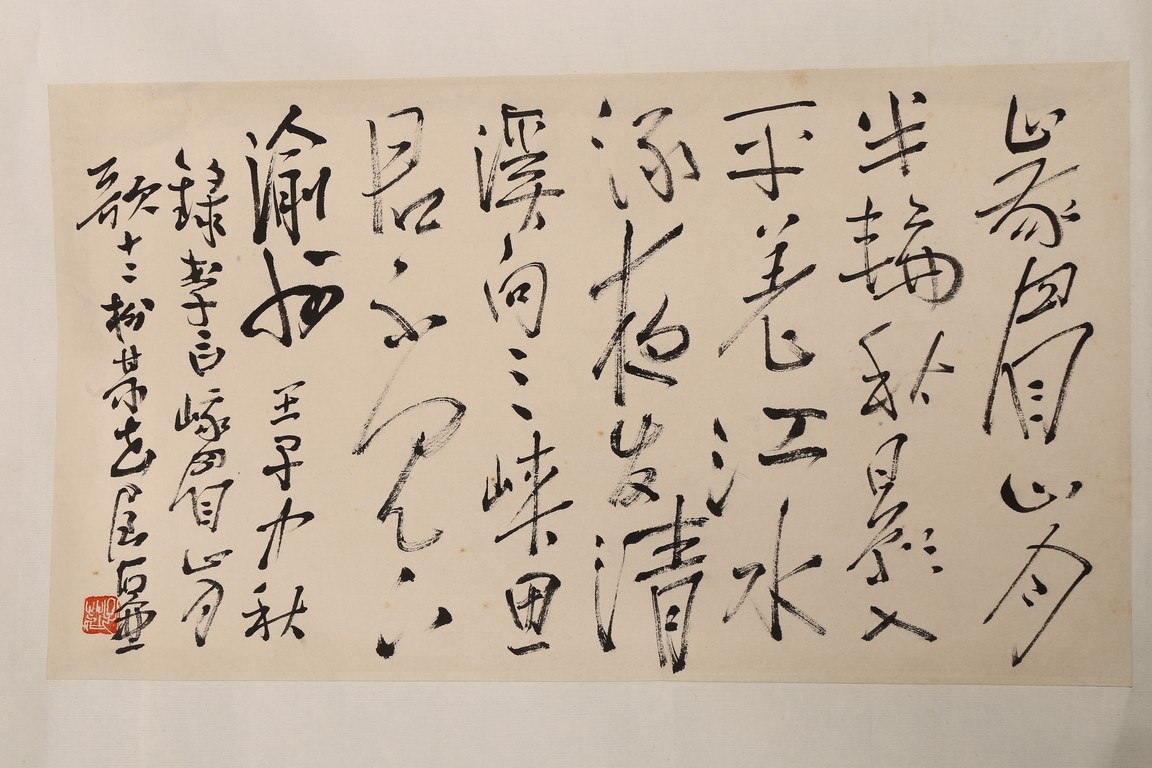 峩眉山月
半輪秋影入
平羌江水
流夜发清
溪向三峽思
君不見下
渝州 壬子中秋
錄李白峨眉山月
歌十二老屋石壺